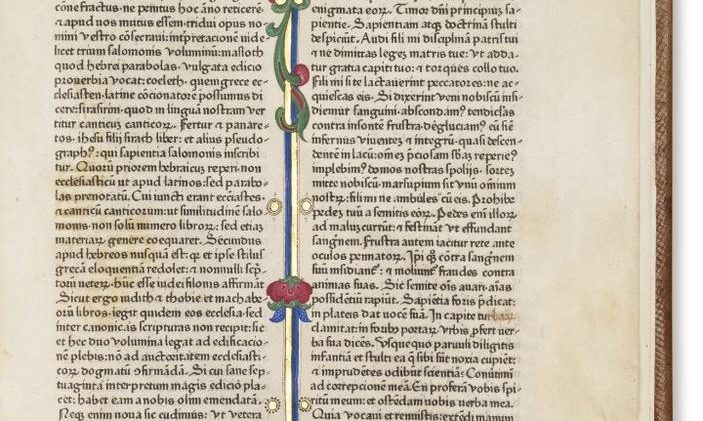 cōne fractus·ne penitus hoc āno reticerē
⁊ apud vos mutus essem·tridui opus no⸗
mini vestro cōsecraui:intṗretatione vide⸗
licet trium salomonis voluminū:masloth
quod hebrei parabolas·vulgata edicio
prouerbia vocat:coeleth·quem grece ec⸗
clesiasten·latine cōcionatorē possumus di
cere:sirasirim·quod in linguā nostram ver⸗
titur canticū canticoꝝ. Fertur ⁊ panare⸗
tos·ihesu filij sirach liber: et alius pseudo⸗
graphꝰ:qui sapientia salomonis inscribi
tur. Quoꝝ priorem hebraicum reperi·non
ecclesiasticū ut apud latinos:sed parabo⸗
las prenotatū. Cui iuncti erant ecclīastes·
⁊ canticū canticorum:ut similitudinē salo
monis·non solū numero libroꝝ: sed etiā
materiaꝝ genere coequaret. Secundus
apud hebreos nusquā est:qꝛ et ipse stilus
grecā eloquentiā redolet: ⁊ nonnulli scp̄⸗
torū veteꝝ·hūc esse iudei filonis affirmāt
Sicut ergo iudith ⁊ thobie et machabe⸗
oꝝ libros·legit quidem eos ecclesia·sed
inter canonicas scripturas non recipit:sic
et hec duo volumina legat ad edificacio⸗
nē plebis:nō ad auctoritatem ecclesiasti⸗
coꝝ dogmatū ꝯfirmandā. Si cui sane sep⸗
tuaginta interpretum magis edicio pla⸗
cet: habet eam a nobis olim emendatā.
Neqꝫ enim noua sic cudimus: ut vetera
enigmata eoꝝ. Timor dn̄i principiū sa⸗
pientie. Sapientiam atqꝫ doctrinā stulti
despiciūt. Audi fili mi disciplinā patris tui
⁊ ne dimittas legeꝫ matris tue: vt adda⸗
tur gratia capiti tuo: ⁊ torques collo tuo.
Fili mi si te lactauerint peccatores:ne ac⸗
quiescas eis. Si dixerint veni nobiscū insi⸗
diemur sanguini·abscondamꝰ tendiclas
contra insontē frustra·deglutiamꝰ eū sic̄
infernus viventeꝫ ⁊ integrū·quasi descen⸗
dentē in lacū:om̄eꝫ p̄ciosam sb̄aꝫ reperiemꝰ
implebimꝰ domos nostras spolijs· sorteꝫ
mitte nobiscū·marsupium sit vnū omnium
nostꝝ:fili mi ne ambules cū eis. Prohibe
pedeꝫ tuū a semitis eoꝝ. Pedes eni illoꝝ
ad malum currūt: ⁊ festināt vt effundant
sangnem. Frustra autem iacitur rete ante
oculos pennatoꝝ. Ip̄i qꝫ cōtra sangnem
suū insidiant᷑: ⁊ moliunt᷑ fraudes contra
animas suas. Sic semite oīs auari·aīas
possidētiū rapiūt. Sapiētia foris p̄dicat:
in plateis dat vocē suā. In capite turbaꝝ
clamitat:in foribꝰ portaꝝ vrbis ꝓfert ver⸗
ba sua dicēs. Vsquequo paruuli diligitis
infantiā et stulti ea q̄ sibi sūt noxia cupiēt:
⁊ imprudētes odibūt scientiā: Cōuertimī
ad correpcionē meā. En proferā vobis spi⸗
ritū meum: et ostendam vobis verba mea.
Quia vocaui et rennuistis:extēdi manum